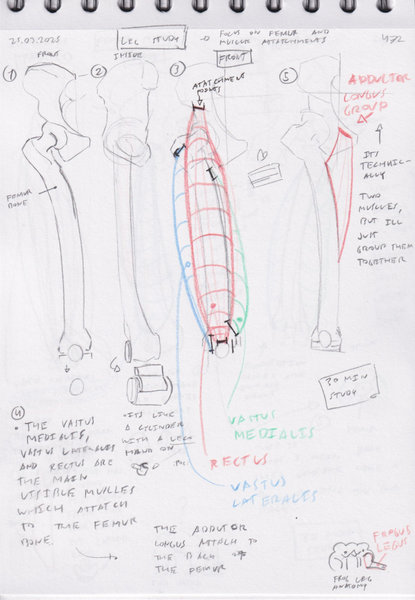 25.03.2025
LEG STUDY
→ FOCUS ON FEMUR AND
MUSCLE ATTATCHMENTS
FRONT
INSIDE
FRONT
1
2
3
5
ATATCHMENT
POINTS
ADDUCTOR
LONGUS
GROUP
ITS
TECHNIC-
ALLY
TWO
MUSCLES,
BUT ILL
JUST
GROUP THEM
TOGETHER
FEMUR
BONE
30 MIN
STUDY
4
• THE VASTUS
MEDIALIS,
VASTUS LATERALES
AND RECTUS ARE
THE MAIN
VISIBLE MUSCLES
WHICH ATTATCH
TO THE FEMUR
BONE.
• ITS LIKE
A CYLINDER
WITH A LEGO
HAND ON
VASTUS
MEDIALIS
RECTUS
VASTUS
LATERALIS
THE ADDUTOR
LONGUS ATTATCH TO
THE BACK OF
THE FEMUR
FROGUS
LEGUS
FROG LEG
ANATOMY